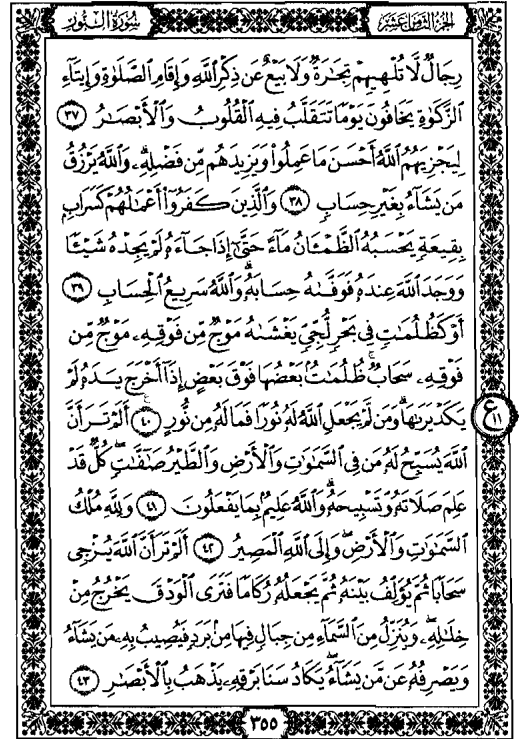 سُورَةُ النُّورِ
الجُزْءُ الثَّامِنَ عَشَرَ
رِجَالٌ لَّا تُلْهِيهِمْ تِجَٰرَةٌ وَلَا بَيْعٌ عَن ذِكْرِ ٱللَّهِ وَإِقَامِ ٱلصَّلَوٰةِ وَإِيتَآءِ
ٱلزَّكَوٰةِ يَخَافُونَ يَوْمًا تَتَقَلَّبُ فِيهِ ٱلْقُلُوبُ وَٱلْأَبْصَٰرُ ٣٧
لِيَجْزِيَهُمُ ٱللَّهُ أَحْسَنَ مَا عَمِلُوا۟ وَيَزِيدَهُم مِّن فَضْلِهِۦ وَٱللَّهُ يَرْزُقُ
مَن يَشَآءُ بِغَيْرِ حِسَابٍ ٣٨ وَٱلَّذِينَ كَفَرُوٓا۟ أَعْمَٰلُهُمْ كَسَرَابٍ
بِقِيعَةٍ يَحْسَبُهُ ٱلظَّمْـَٔانُ مَآءً حَتَّىٰٓ إِذَا جَآءَهُۥ لَمْ يَجِدْهُ شَيْـًٔا
وَوَجَدَ ٱللَّهَ عِندَهُۥ فَوَفَّىٰهُ حِسَابَهُۥ ۗ وَٱللَّهُ سَرِيعُ ٱلْحِسَابِ ٣٩
أَوْ كَظُلُمَٰتٍ فِى بَحْرٍ لُّجِّىٍّ يَغْشَىٰهُ مَوْجٌ مِّن فَوْقِهِۦ مَوْجٌ مِّن
فَوْقِهِۦ سَحَابٌ ۚ ظُلُمَٰتٌۢ بَعْضُهَا فَوْقَ بَعْضٍ إِذَآ أَخْرَجَ يَدَهُۥ لَمْ
يَكَدْ يَرَىٰهَا ۗ وَمَن لَّمْ يَجْعَلِ ٱللَّهُ لَهُۥ نُورًا فَمَا لَهُۥ مِن نُّورٍ ٤٠ أَلَمْ تَرَ أَنَّ
ع ١١
ٱللَّهَ يُسَبِّحُ لَهُۥ مَن فِى ٱلسَّمَٰوَٰتِ وَٱلْأَرْضِ وَٱلطَّيْرُ صَٰٓفَّٰتٍ ۖ كُلٌّ قَدْ
عَلِمَ صَلَاتَهُۥ وَتَسْبِيحَهُۥ ۗ وَٱللَّهُ عَلِيمٌۢ بِمَا يَفْعَلُونَ ٤١ وَلِلَّهِ مُلْكُ
ٱلسَّمَٰوَٰتِ وَٱلْأَرْضِ ۖ وَإِلَى ٱللَّهِ ٱلْمَصِيرُ ٤٢ أَلَمْ تَرَ أَنَّ ٱللَّهَ يُزْجِى
سَحَابًا ثُمَّ يُؤَلِّفُ بَيْنَهُۥ ثُمَّ يَجْعَلُهُۥ رُكَامًا فَتَرَى ٱلْوَدْقَ يَخْرُجُ مِنْ
خِلَٰلِهِۦ وَيُنَزِّلُ مِنَ ٱلسَّمَآءِ مِن جِبَالٍ فِيهَا مِنۢ بَرَدٍ فَيُصِيبُ بِهِۦ مَن يَشَآءُ
وَيَصْرِفُهُۥ عَن مَّن يَشَآءُ ۖ يَكَادُ سَنَا بَرْقِهِۦ يَذْهَبُ بِٱلْأَبْصَٰرِ ٤٣
٣٥٥